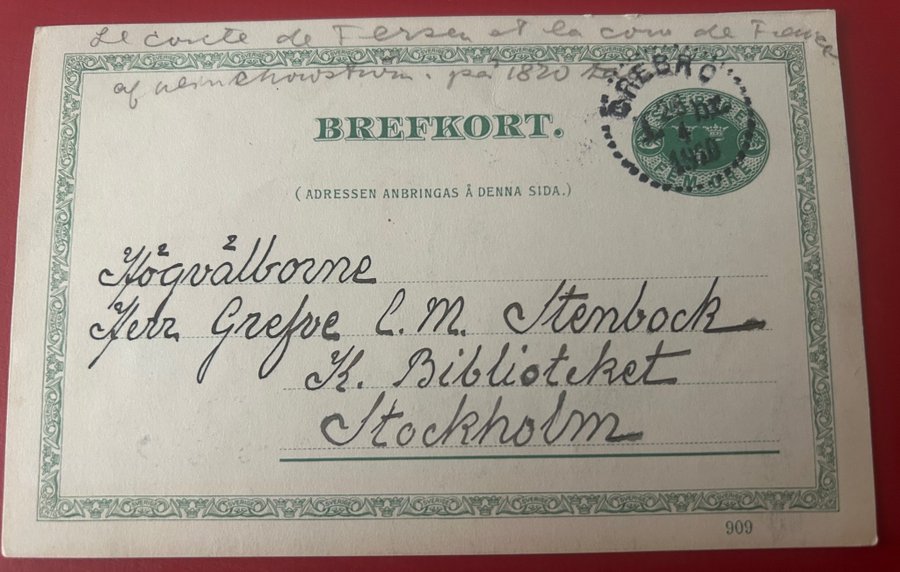 Le comte de Fersen et la cour de France
af Klinckowström. på 1820
BREFKORT.
ÖREBRO
4
FEM ÖRE
(ADRESSEN ANBRINGAS Å DENNA SIDA.)
Högvälborne
Herr Grefve C. M. Stenbock
K. Biblioteket
Stockholm
909